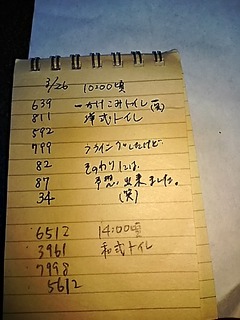 3/26 10:00頃
639 一かけこみトイレ(笑)
811 洋式トイレ
592
799 フライングしたけど
82 そのわりには、
87 予想、出来ました。
34 (笑)
6512 14:00頃
3961 和式トイレ
7998
5612